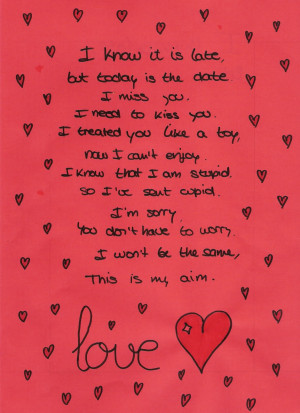 I know it is late,
but today is the date
I miss you.
I need to kiss you.
I treated you like a toy,
now I can't enjoy.
I know that I am stupid.
so I've sent cupid.
I'm sorry.
You don't have to worry.
I won't be the same,
This is my aim.
love